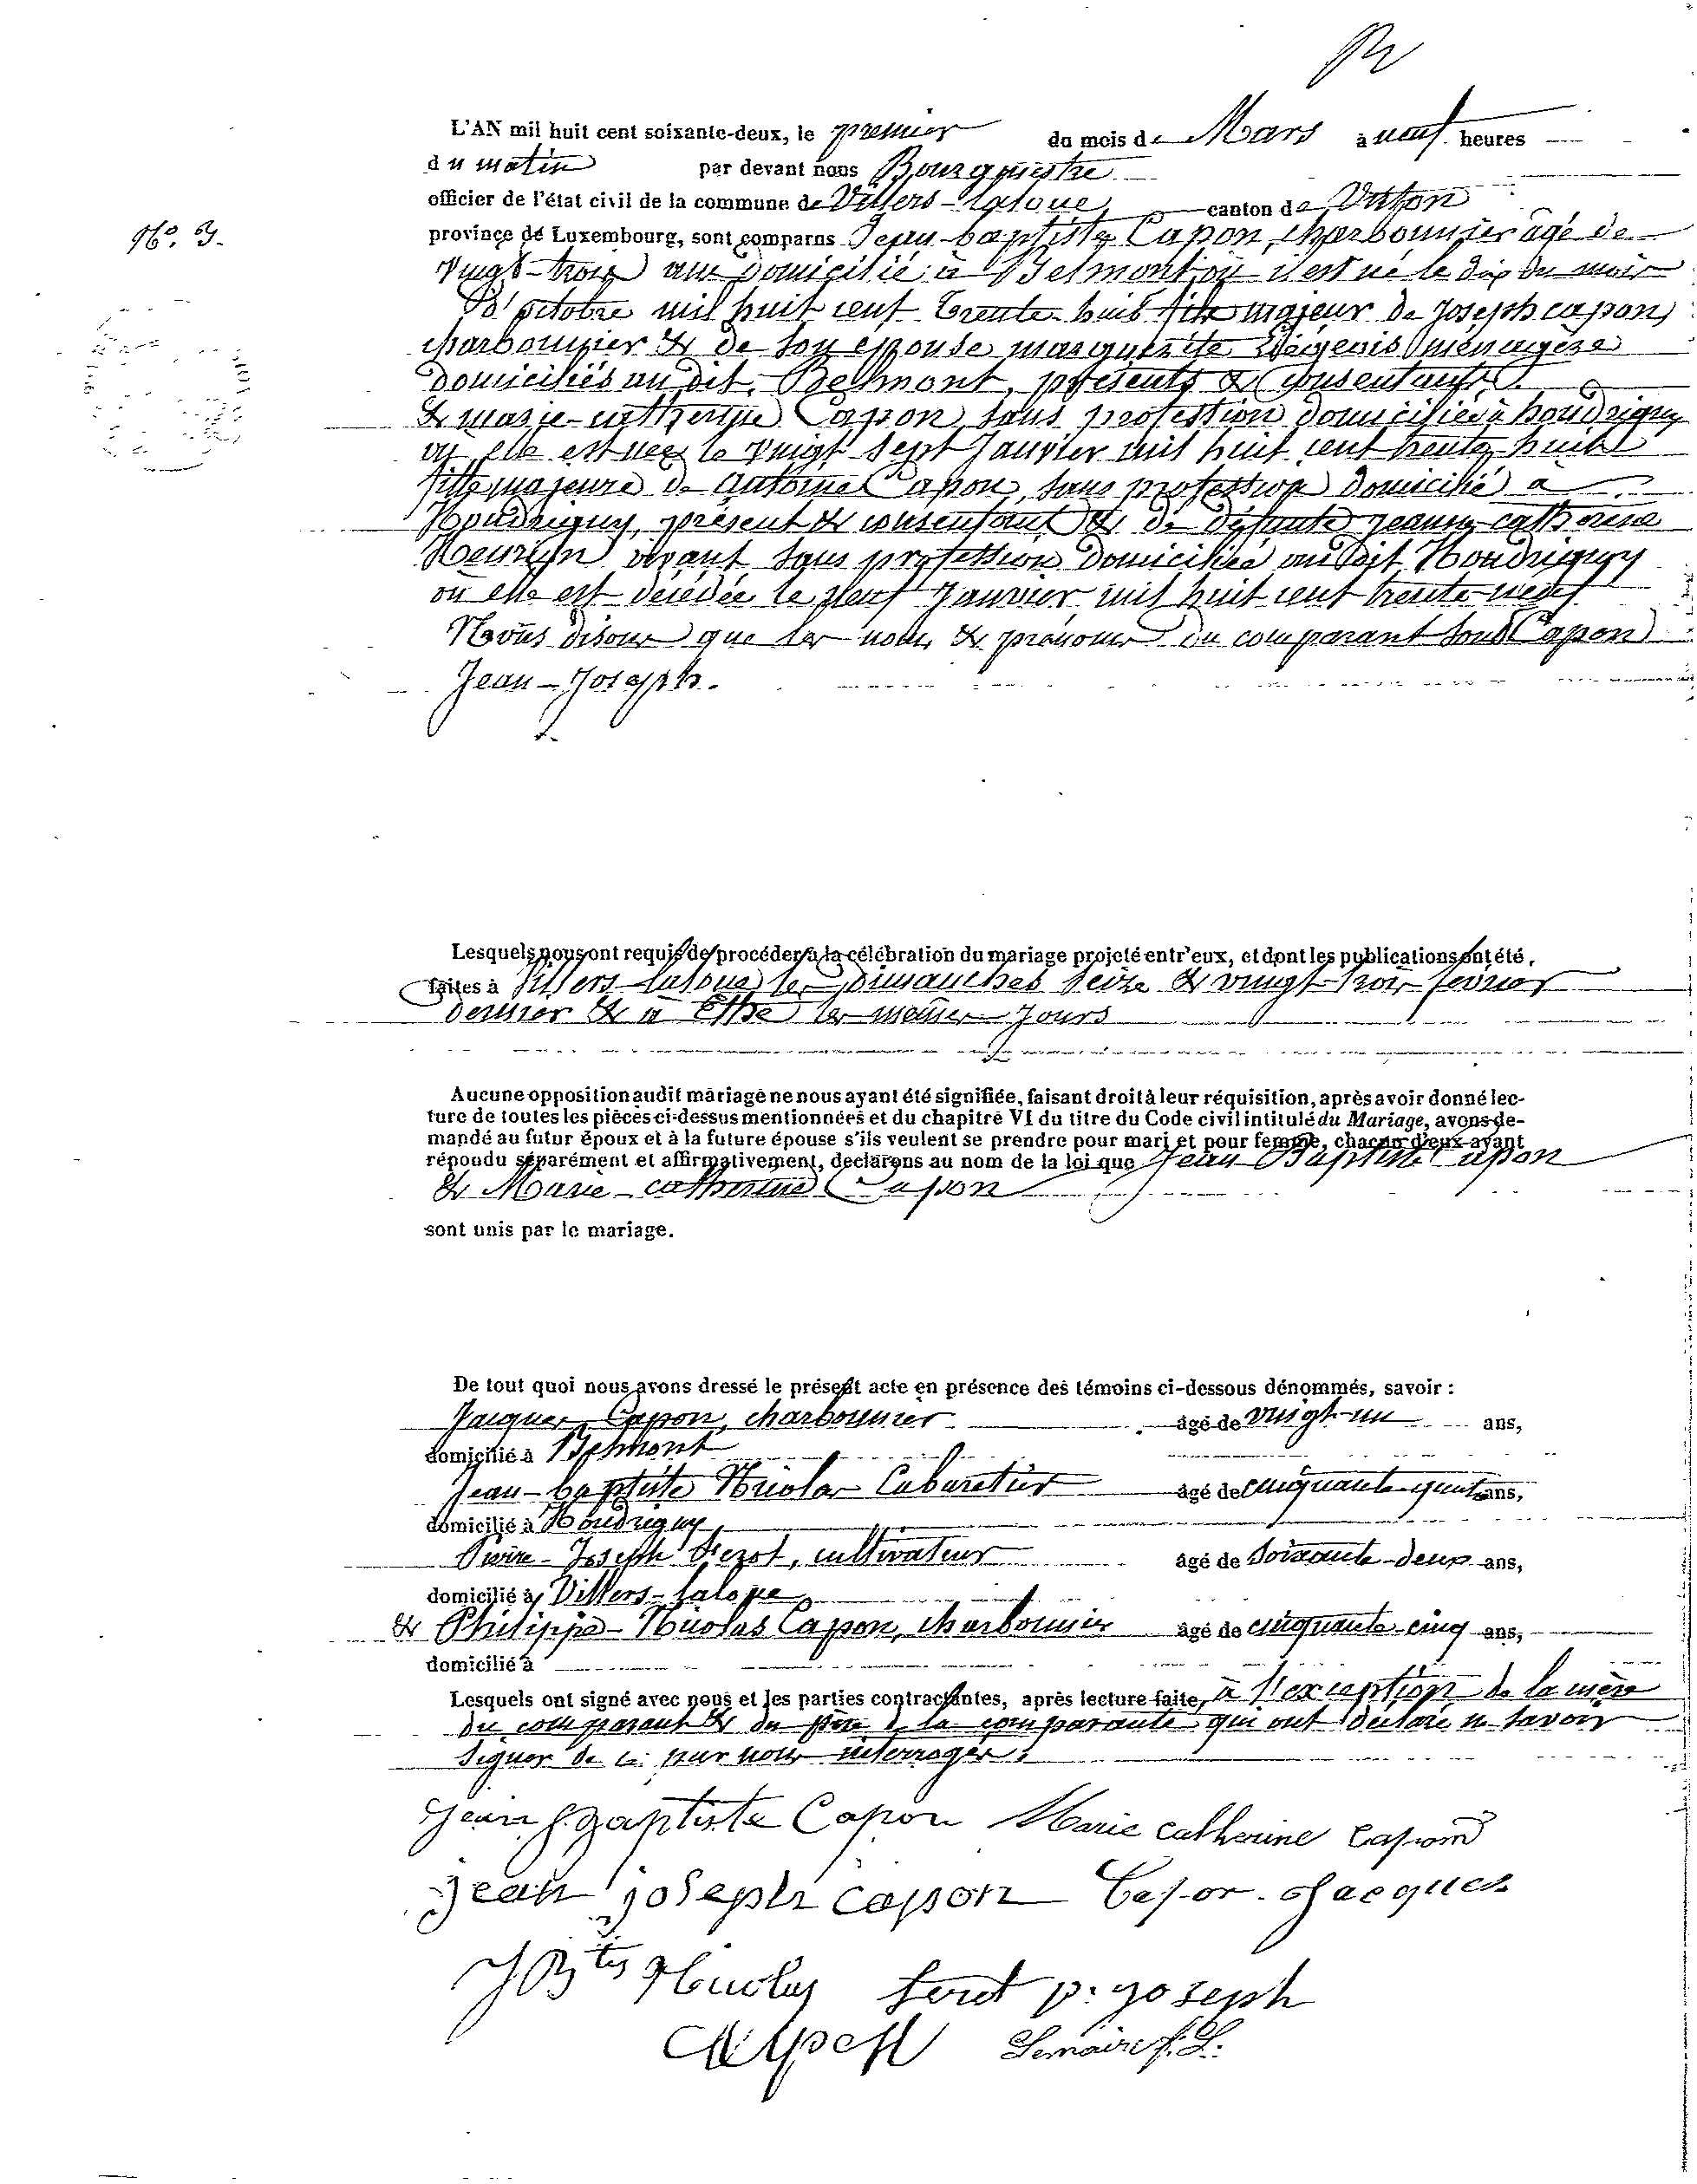 L'AN mil huit cent soixante-deux, le premier du mois de Mars à neuf heures
du matin par devant nous Bourgmestre
officier de l'état civil de la commune de Villers-laloue, canton de Virton
N°. 3.
province de Luxembourg, sont comparus Jean-baptiste Capon, charbonnier âgé de
vingt-trois ans domicilié à Belmont, où il est né le dix du mois
d'octobre mil huit cent trente-huit fils majeur de Joseph capon,
charbonnier & de son épouse marguerite ménagère
domiciliés au dit Belmont, présents & consentants
& marie-catherine Capon, sans profession domiciliée à houdrigny
où elle est née le vingt sept Janvier mil huit cent trente huit
fille majeure de antoine Capon, sans profession domicilié à
Houdrigny, présent & consentant & de défunte jeanne catherine
vivant sans profession domiciliée au dit Houdrigny
où elle est décédée le neuf Janvier mil huit cent trente-neuf
Nous disons que les nom & prénoms du comparant sont Capon
Jean-Joseph.
Lesquels nous ont requis de procéder à la célébration du mariage projeté entr'eux, et dont les publications ont été
faites à Villers-laloue les Dimanches seize & vingt-trois fevrier
dernier & à Ethe les mêmes jours
Aucune opposition audit mariage ne nous ayant été signifiée, faisant droit à leur réquisition, après avoir donné lec-
ture de toutes les pièces ci-dessus mentionnées et du chapitre VI du titre du Code civil intitulé du Mariage, avons de-
mandé au futur époux et à la future épouse s'ils veulent se prendre pour mari et pour femme, chacun d'eux ayant
répondu séparément et affirmativement, déclarons au nom de la loi que Jean Baptiste Capon
& Marie-catherine Capon
sont unis par le mariage.
De tout quoi nous avons dressé le présent acte en présence des témoins ci-dessous dénommés, savoir :
Jacques Capon, charbonnier âgé de vingt-un ans,
domicilié à Belmont
Jean-baptiste Nicolas Cabaretier âgé de cinquante-quatre ans,
domicilié à Houdrigny
Pierre-Joseph cultivateur âgé de soixante-deux ans,
domicilié à Villers-laloue
& Philippe-Nicolas Capon, charbonnier âgé de cinquante-cinq ans,
domicilié à
Lesquels ont signé avec nous et les parties contractantes, après lecture faite, à l'exception de la mère
du comparant & du père de la comparante qui ont déclaré ne savoir
signer de ce par nous interrogés.
Jean Baptiste Capon Marie catherine Capon
jean joseph capon Capon Jacques
JBte Nicolas p. joseph
Lemaire f. L.